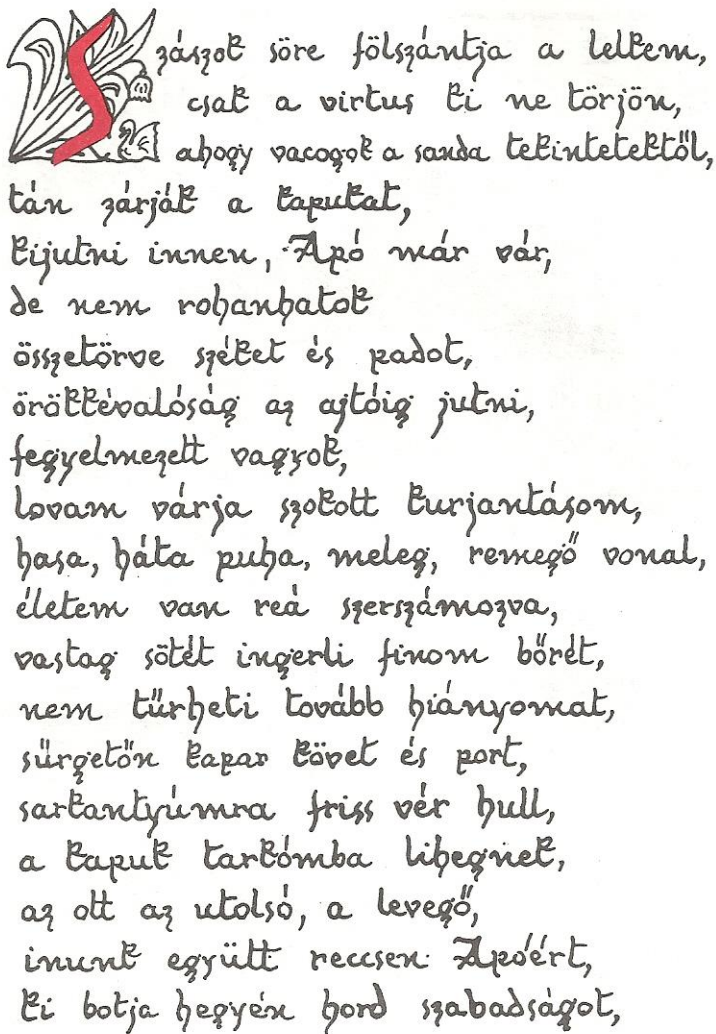 Szászok söre fölszántja a lelkem,
csak a virtus ki ne törjön,
ahogy vacogok a sanda tekintetektől,
tán zárják a kapukat,
kijutni innen, Apó már vár,
de nem rohanhatok
összetörve széket és padot,
örökkévalóság az ajtóig jutni,
fegyelmezett vagyok,
lovam várja szokott kurjantásom,
hasa, háta puha, meleg, remegő vonal,
életem van reá szerszámozva,
vastag sötét ingerli finom bőrét,
nem tűrheti tovább hiányomat,
sürgetőn kapar követ és port,
sarkantyúmra friss vér hull,
a kapuk tarkómba lihegnek,
az ott az utolsó, a levegő,
inunk együtt reccsen Apóért,
ki botja hegyén hord szabadságot,